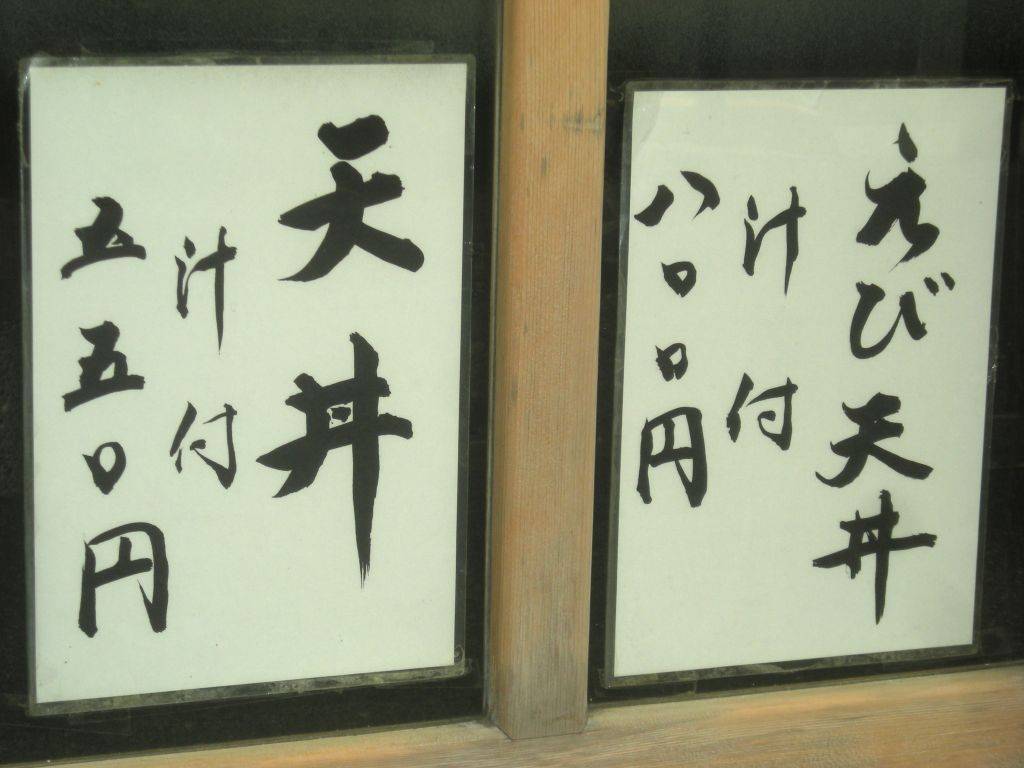 えび天丼
汁付
八〇〇円
天丼
汁付
五五〇円